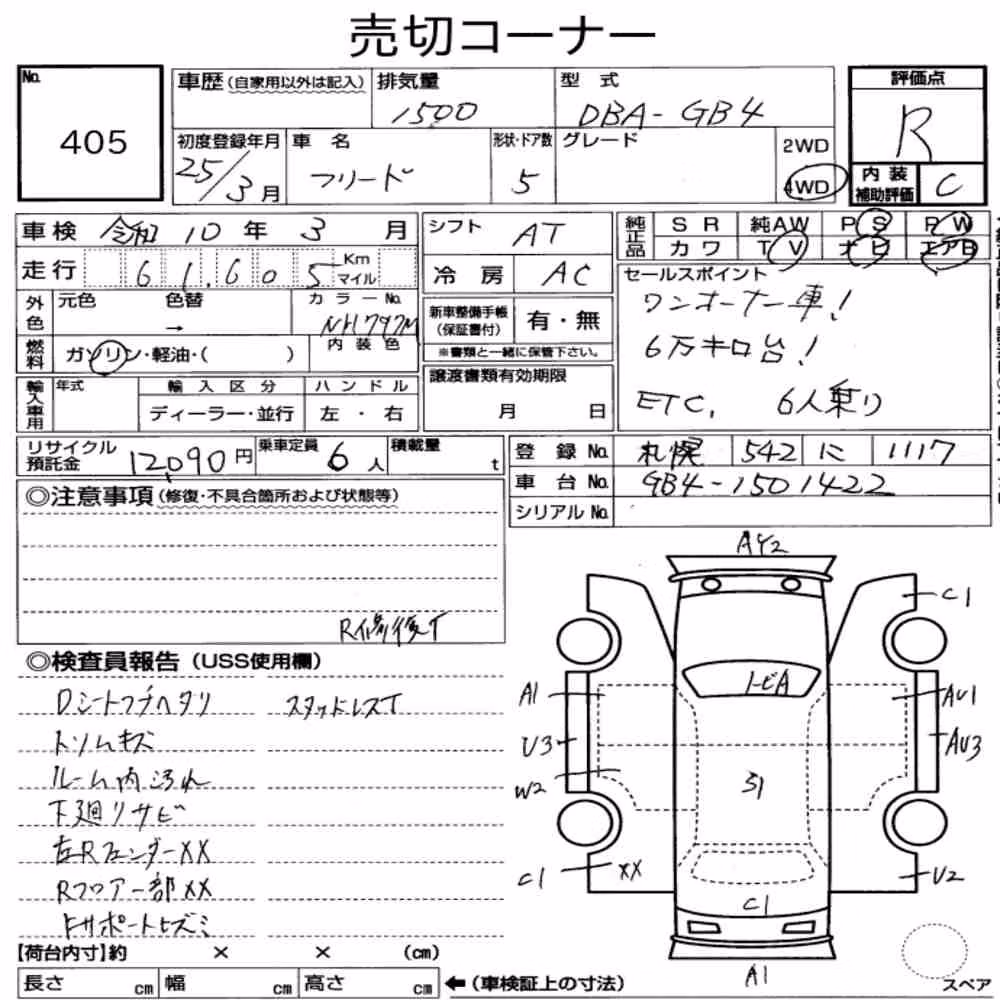 売切コーナー
No.
405
車歴(自家用以外は記入)
排気量
1500
型式
DBA-GB4
評価点
R
初度登録年月
25/3月
車名
フリード
形状・ドア数
5
グレード
2WD
4WD
内装
補助評価
C
車検 令和 10 年 3 月
シフト AT
純正品
SR 純AW PS PW
カワ TV ナビ エアB
走行 61,605 Km
マイル
冷房 AC
セールスポイント
ワンオーナー車!
6万キロ台!
ETC, 6人乗り
外色
元色 色替 カラーNo.
→ NH797M
内装色
新車整備手帳
(保証書付)
有・無
※書類と一緒に保管下さい。
燃料
ガソリン・軽油・( )
輸入車用
年式 輸入区分 ハンドル
ディーラー・並行 左・右
譲渡書類有効期限
月 日
リサイクル
預託金
12,090円
乗車定員 6人
積載量 t
登録No. 札幌 542 に 1117
車台No. GB4-1501422
シリアルNo.
◎注意事項(修復・不具合箇所および状態等)
R修復T
◎検査員報告(USS使用欄)
Dシートフチヘタリ スタッドレスT
トリムキズ
ルーム内汚れ
下廻リサビ
左RフェンダーXX
Rフロアー部XX
トビA
AY2
C1
A1
AU1
U3
AU3
W2
S1
C1
XX
U2
C1
A1
【荷台内寸】約 × × (cm)
長さ cm 幅 cm 高さ cm ←(車検証上の寸法)
スペア